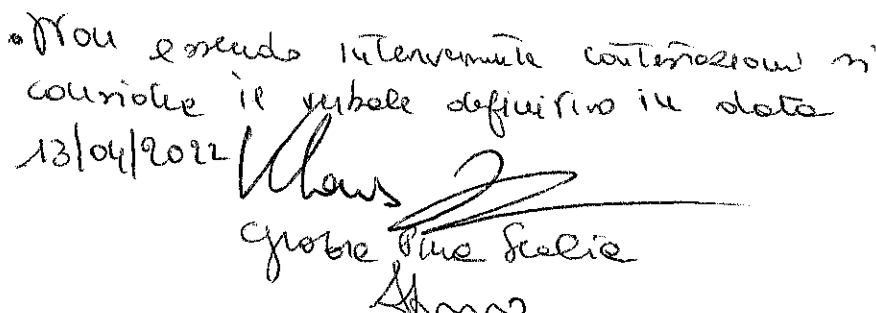 • Non essendo intervenute contestazioni si
considera il verbale definitivo in data
13/04/2022
Klaus
Pina Scalia